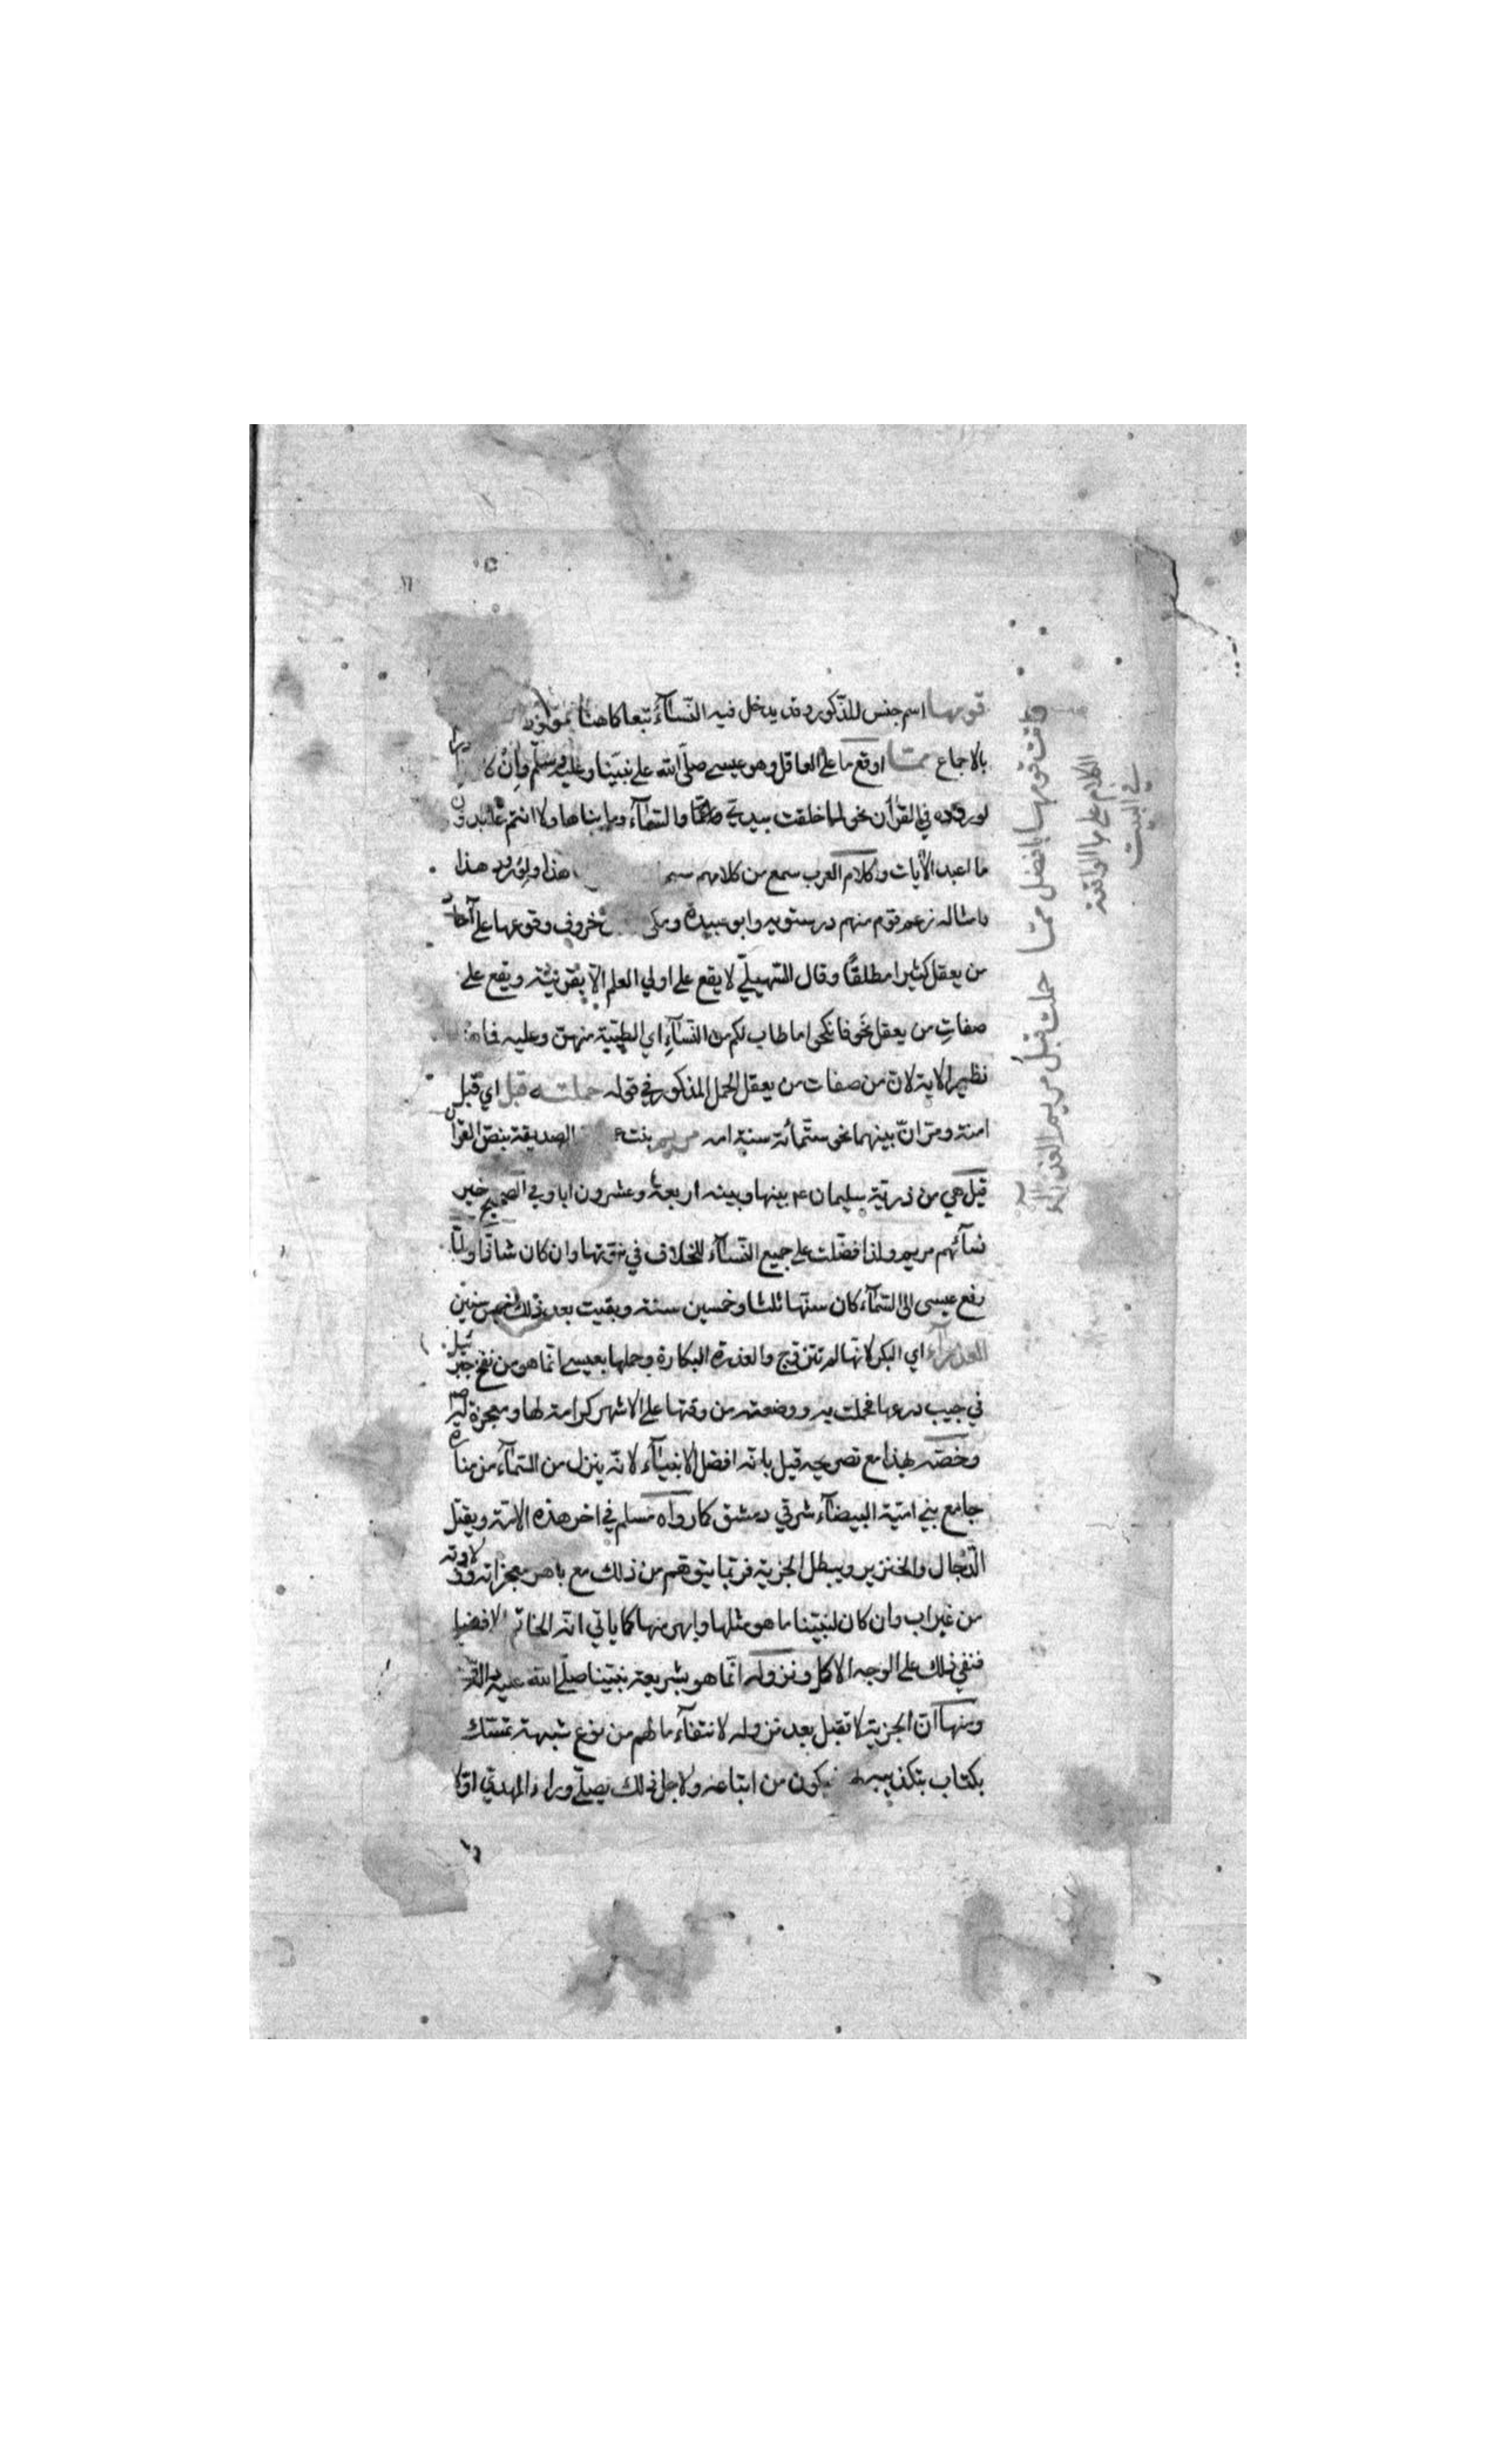 قومها اسم جنس للذكور وقد يدخل فيه النسآء تبعا كما هنا
بالاجماع مما اوقع ما على العاقل وهو عيسى صلى الله على نبينا وعليه وسلم وان
لوروده في القرآن نحو لما خلقت بيدي والسمآء وما بناها ولا انتم عابدون
ما اعبد الآيات وكلام العرب سمع من كلامهم هذا ولورود هذا
وامثاله زعم قوم منهم درستويه وابو عبيدة ومكي خروف وقوعها على آحاد
من يعقل كثيرا مطلقًا وقال السهيلي لا يقع على اولي العلم الا بقرينة ويقع على
صفاتِ من يعقل نحو فانكحوا ما طاب لكم من النسآءِ اي الطيبة منهن وعليه فما
نظير الاية لان من صفات من يعقل الحمل المذكور في قوله حملت قبل اي قبل
امنة ومر ان بينهما نحو ستمائة سنة امه مريم بنت الصديقة بنص القرآن
قيل هي من ذرية سليمان بينها وبينه اربعة وعشرون ابا وفي الصحيح خير
نسآئهم مريم ولذا فضلت على جميع النسآء للخلاف في نبوتها وان كان شاذًا ولما
رفع عيسى الى السمآء كان سنها ثلثا وخمسين سنة وبقيت بعد ذلك خمس سنين
العذرآء اي البكر لانها لم تتزوج والعذرة البكارة وحملها بعيسى انما هو من نفخ جبرئيل
في جيب درعها فحملت به ووضعته من وقتها على الاشهر كرامة لها ومعجزة
وخصه بهذا مع تصريحه قيل بانه افضل الانبيآء لانه ينزل من السمآء من منارة
جامع بني امية البيضآء شرقي دمشق كما رواه مسلم في اخر هذه الامة ويقتل
الدجال والخنزير ويبطل الجزية فربما يتوهم من ذلك مع باهر معجزاته وولادته
من غير اب وان كان لنبينا ما هو مثلها وابهر منها كما ياتي انه الخاتم
فنفي ذلك على الوجه الاكمل ونزوله انما هو بشريعة نبينا صلى الله عليه
ومنها ان الجزية لا تقبل بعد نزوله لانتفآء ما لهم من نوع شبهة تمسك
بكتاب بتكذيبه فيكون من اتباعه ولاجل ذلك يصلي وراء المهدي اولا
واتت قومها بافضل مما حملت قبل مريم العذرآء
الكلام على ما الواقعة
في البيت